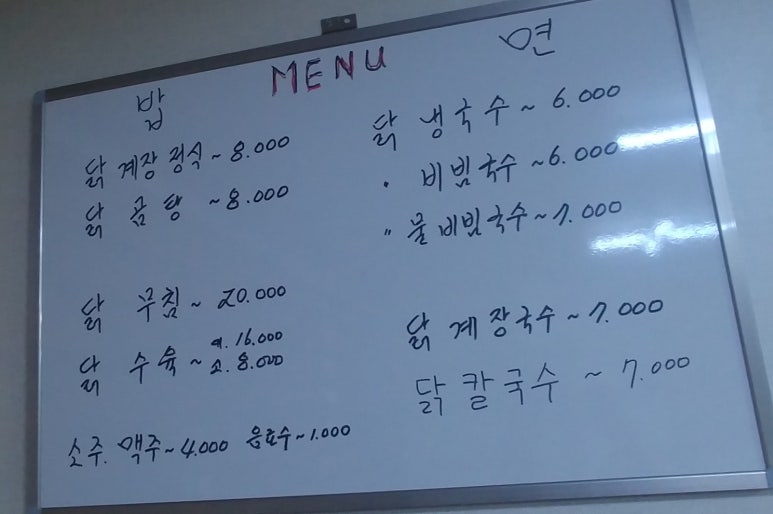 MENU
밥
닭 계장 정식 ~ 8.000
닭 곰탕 ~ 8.000
닭 무침 ~ 20.000
닭 수육 ~ 대. 16.000
소. 8.000
소주. 맥주 ~ 4.000 음료수 ~ 1.000
면
닭 냉국수 ~ 6.000
〃 비빔국수 ~ 6.000
〃 물비빔국수 ~ 7.000
닭 계장국수 ~ 7.000
닭 칼국수 ~ 7.000